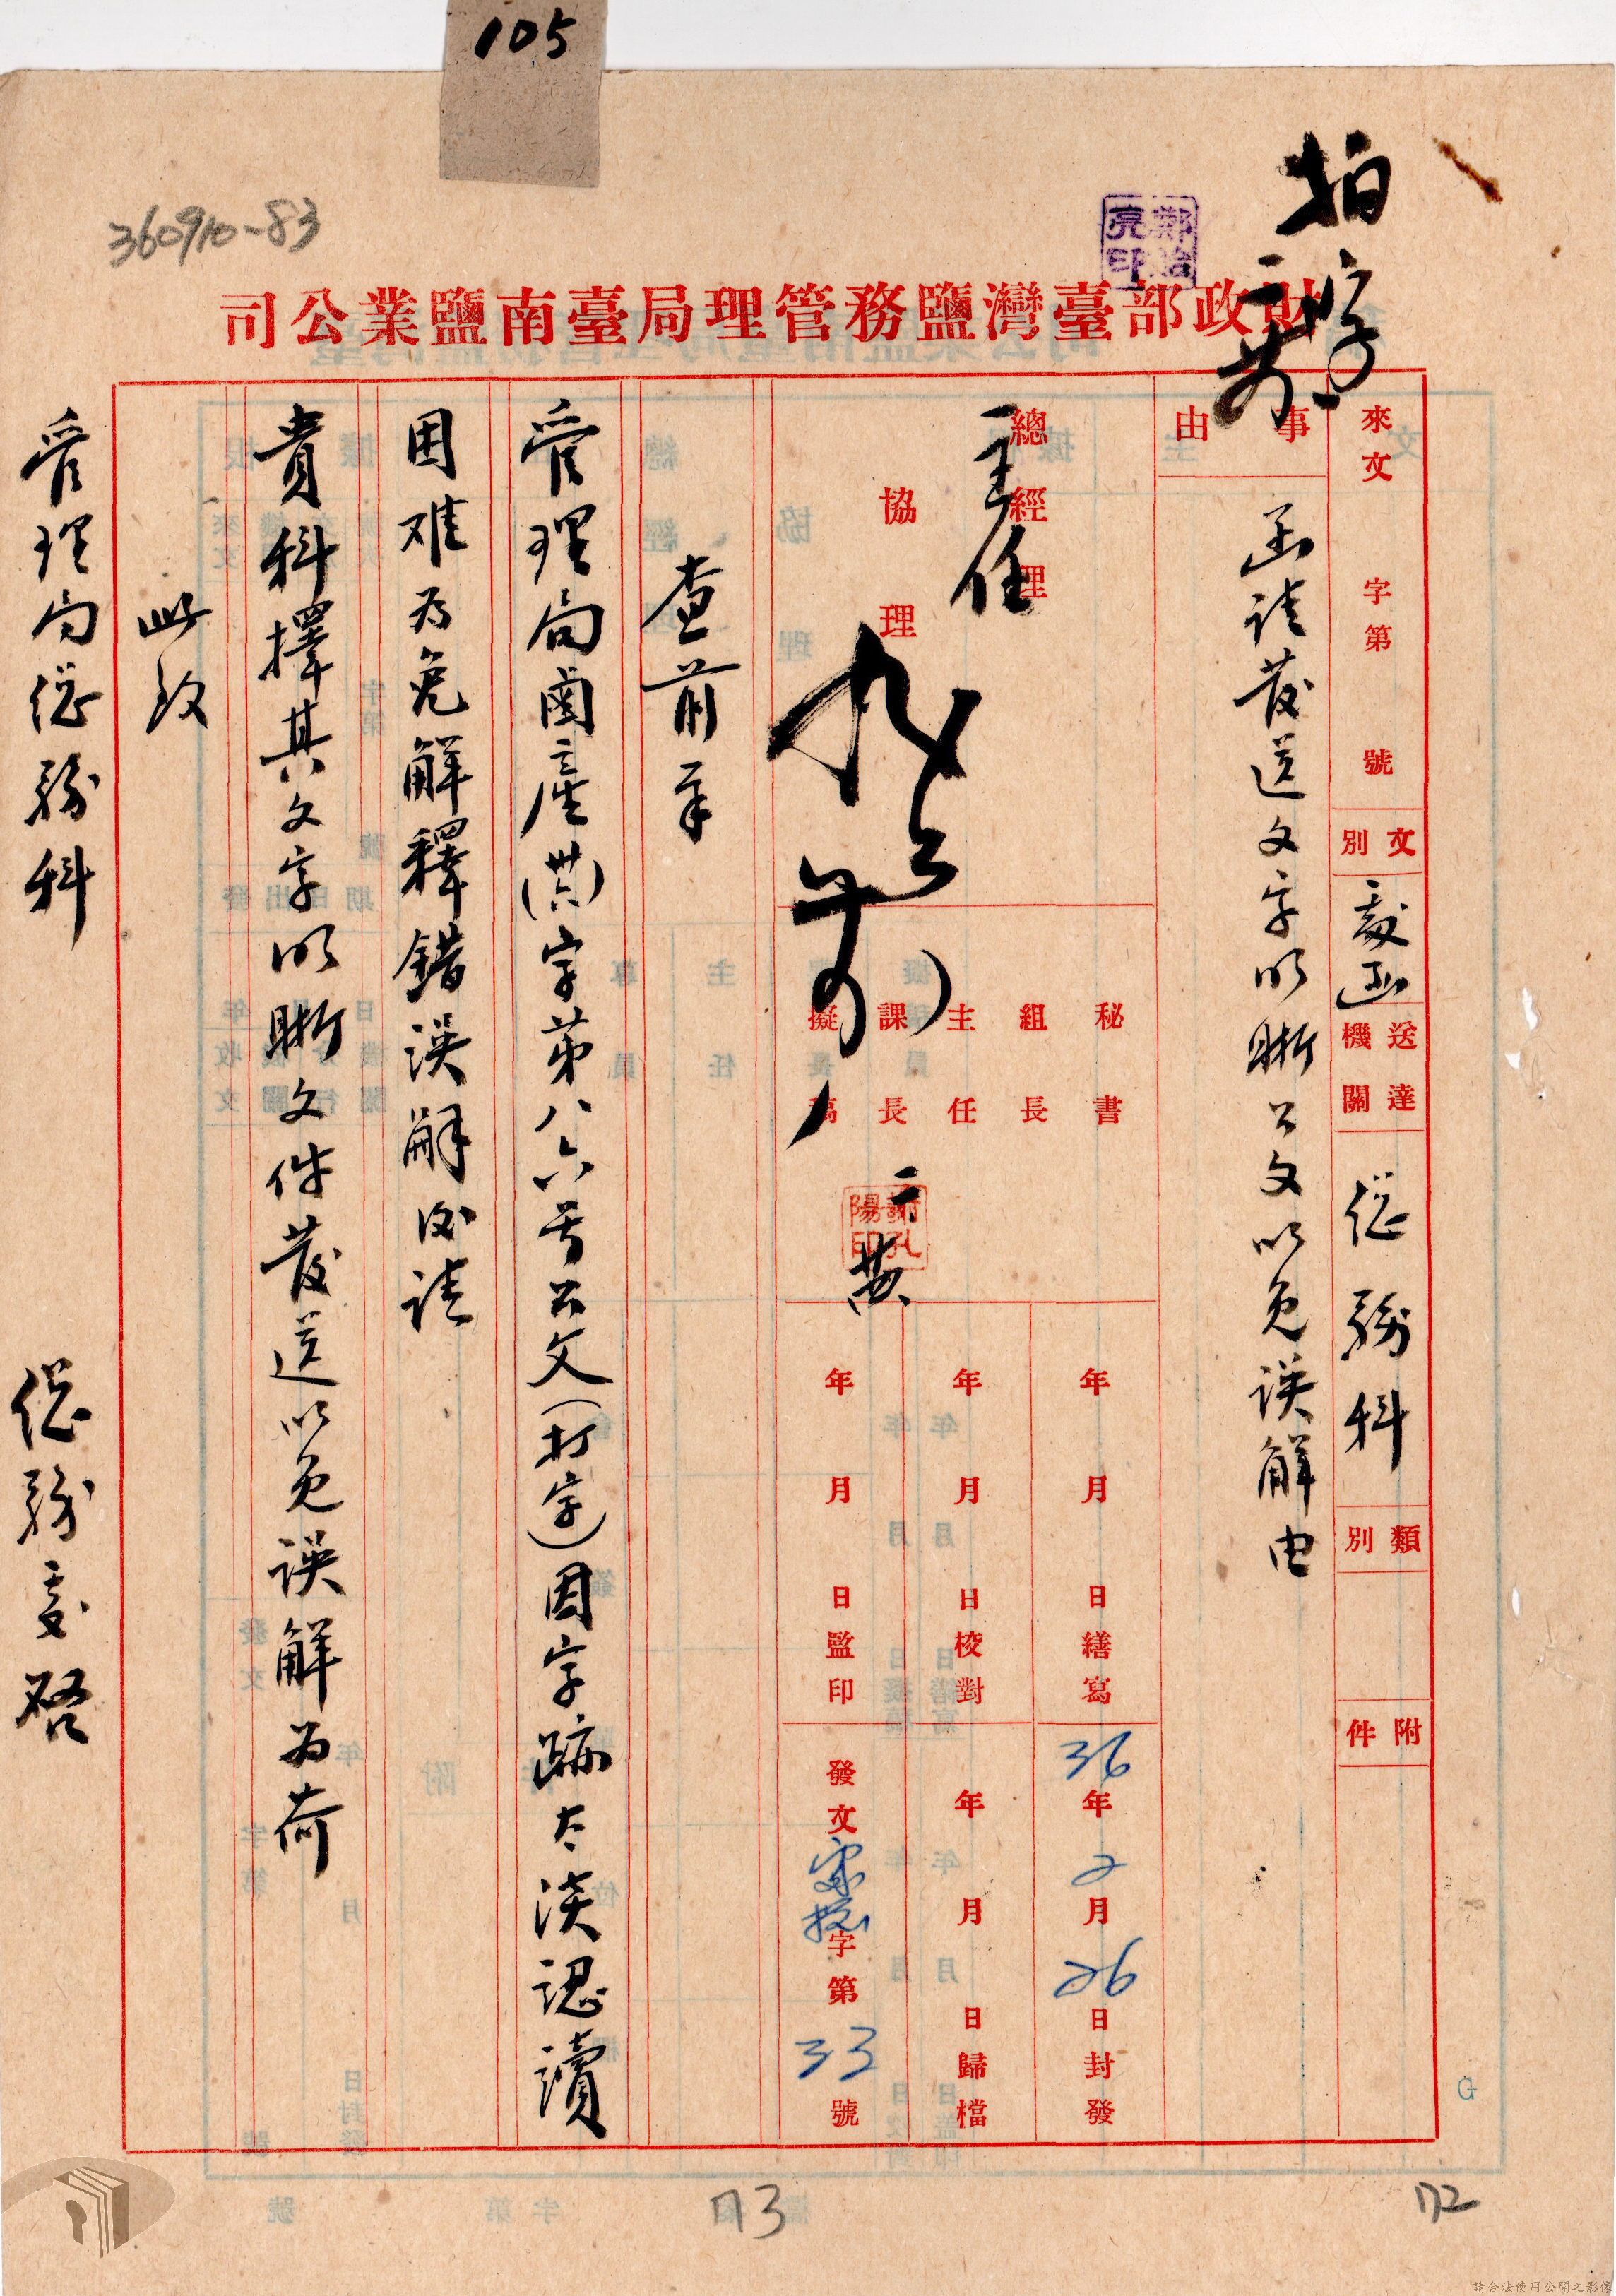 105
360910-83
鄭治亮印
財政部臺灣鹽務管理局臺南鹽業公司
來文 字第 號
文別
送達機關 總務科
類別
附件
事由
函請發送文字明晰公文以免誤解由
總經理
協理
主任
秘書
組長
主任
課長
擬稿
謝孔陽印
年 月 日繕寫
年 月 日校對
年 月 日監印
36年2月26日封發
年 月 日歸檔
發文 字第33號
查前奉
管理局鹵產(卅六)字第八六号公文(打字)因字跡太淡認讀
困难为免解釋錯誤解必請
貴科擇其文字明晰文件發送以免誤解为荷
此致
管理局總務科
總務處啓
173
172
G
請合法使用公開之影像